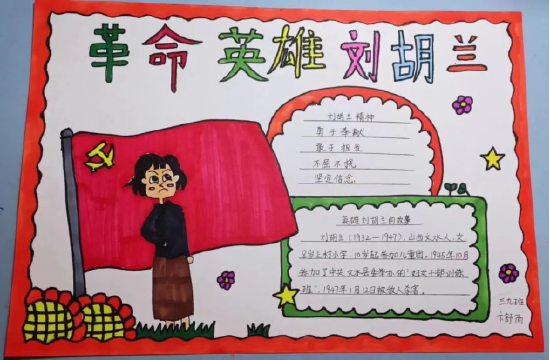 革命英雄刘胡兰
刘胡兰精神
勇于奉献
敢于担当
不屈不挠
坚定信念
英雄刘胡兰的故事
刘胡兰(1932—1947),山西文水人,
8岁上村小学,10岁起参加儿童团,1945年10月
参加了中共文水县委举办的“妇女干部训练
班”,1947年1月12日被敌人杀害。
三九班